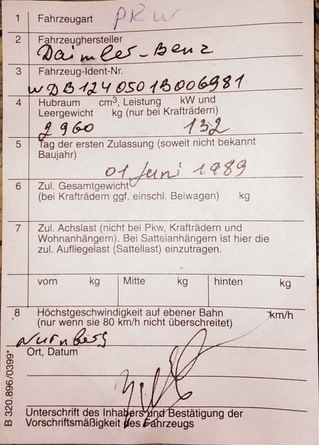 1 Fahrzeugart PKW
2 Fahrzeughersteller
Daimler-Benz
3 Fahrzeug-Ident-Nr.
WDB1240501B006981
4 Hubraum cm³, Leistung kW und
Leergewicht kg (nur bei Krafträdern)
2960 132
5 Tag der ersten Zulassung (soweit nicht bekannt
Baujahr)
01 Juni 1989
6 Zul. Gesamtgewicht
(bei Krafträdern ggf. einschl. Beiwagen) kg
7 Zul. Achslast (nicht bei Pkw, Krafträdern und
Wohnanhängern). Bei Sattelanhängern ist hier die
zul. Aufliegelast (Sattellast) einzutragen.
vorn kg Mitte kg hinten kg
8 Höchstgeschwindigkeit auf ebener Bahn km/h
(nur wenn sie 80 km/h nicht überschreitet)
Nürnberg
Ort, Datum
Unterschrift des Inhabers und Bestätigung der
Vorschriftsmäßigkeit des Fahrzeugs
B 320.896/0399*